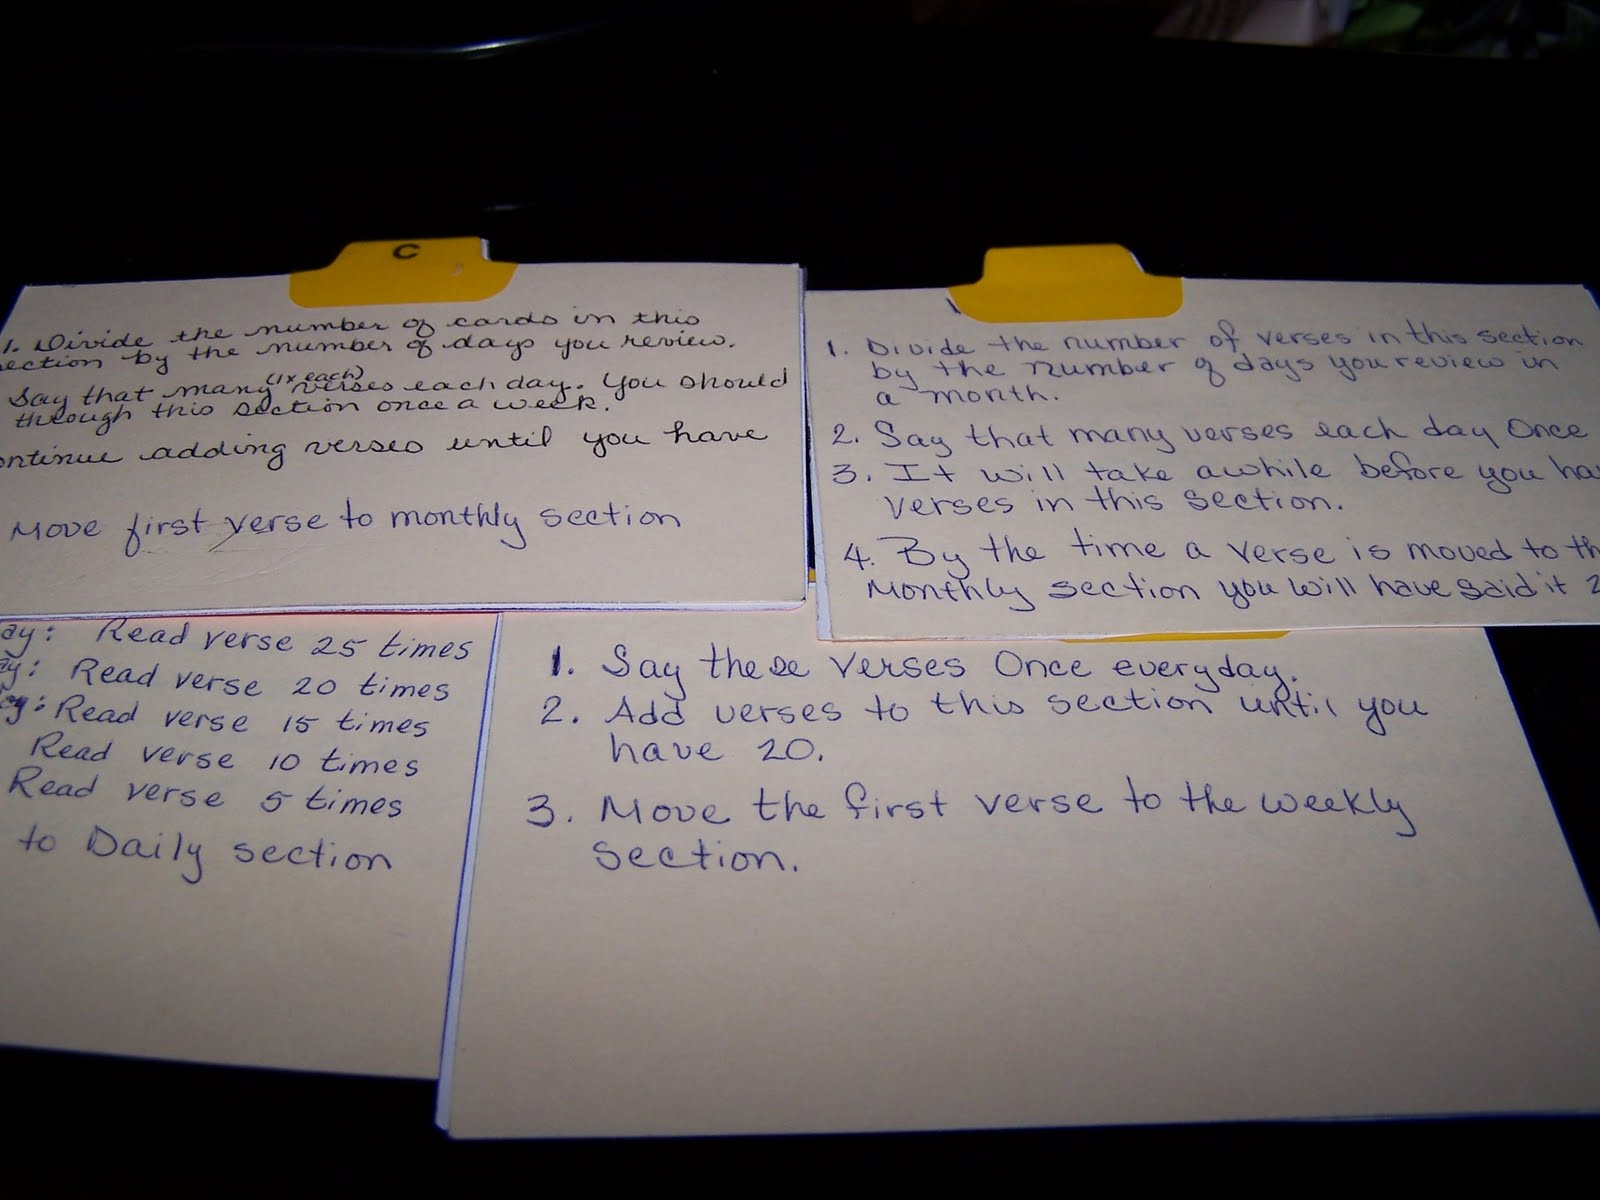 C
1. Divide the number of cards in this
ection by the number of days you review.
(1x each)
Say that many verses each day. You should
through this section once a week.
ontinue adding verses until you have
Move first verse to monthly section
1. Divide the number of verses in this section
by the number of days you review in
a month.
2. Say that many verses each day Once
3. It will take awhile before you ha
verses in this section.
4. By the time a verse is moved to th
Monthly section you will have said it 2
ay: Read verse 25 times
ay: Read verse 20 times
ay: Read verse 15 times
Read verse 10 times
Read verse 5 times
to Daily section
1. Say these verses Once everyday.
2. Add verses to this section until you
have 20.
3. Move the first verse to the weekly
section.